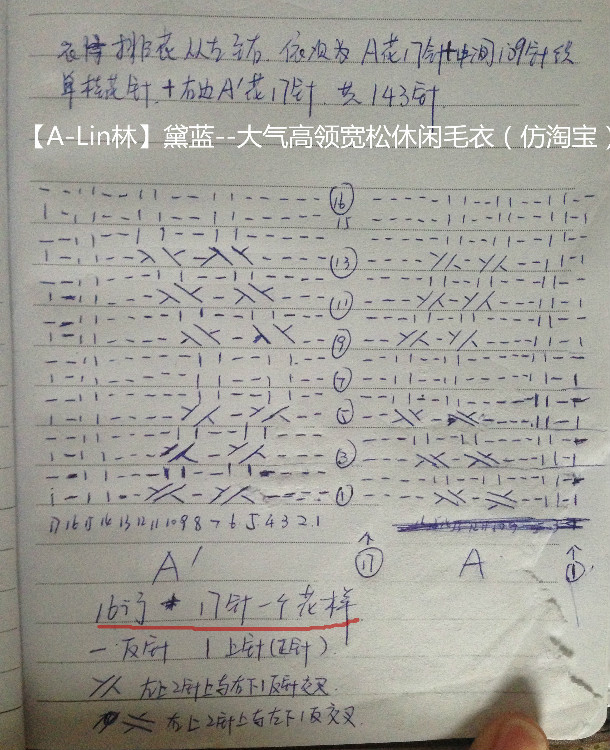 衣片排花从左至右.依次为A花17针+中间109针织
单桂花针.+右边A'花17针.共143针
【A-Lin林】黛蓝--大气高领宽松休闲毛衣（仿淘宝）
16
15
13
11
9
7
5
3
1
17 16 15 14 13 12 11 10 9 8 7 6 5 4 3 2 . 1
A' 17 A 1
16行 17针一个花样
一 反针 | 上针(正针)
左上2针上与右下1反针交叉.
右上2针上与左下1反交叉.